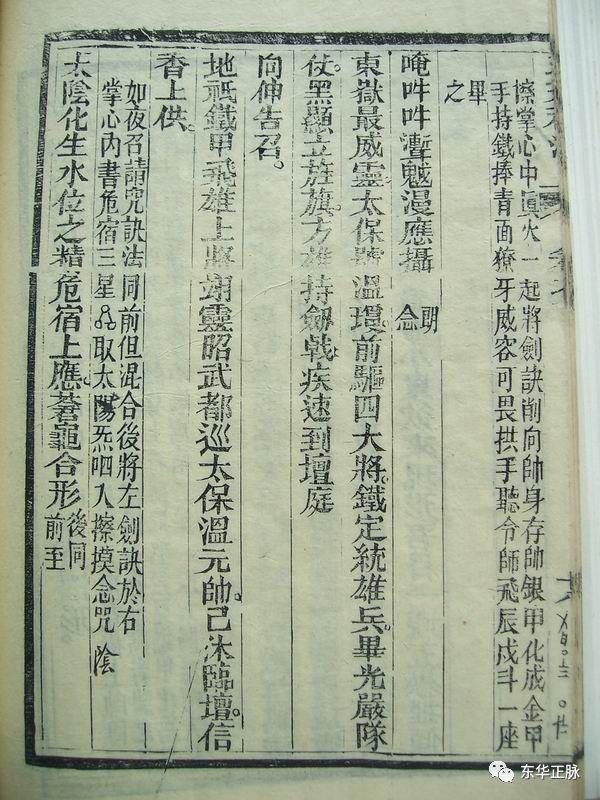 擦掌心中眞火一起將劍訣削向帥身存帥銀甲化成金甲
手持鐵捧青面獠牙威容可畏拱手聽令師飛辰戌斗一座
畢
之
唵吽吽漫應攝 朗念
東嶽最威靈太保號溫瓊前驅四大將鐵定統雄兵畢光嚴隊
仗黑顯立旌旗方雄持劔戟疾速到壇庭
向伸告召。
地祇鐵甲飛雄上將翊靈昭武都巡太保溫元帥已沐臨壇。信
香上供。
如夜召請咒訣法同前但混合後將左劍訣於右
掌心內書危宿三星取太陽炁呬入擦摸念咒 陰
太陰化生水位之精危宿上應蒼龜合形 後同前至
东华正脉